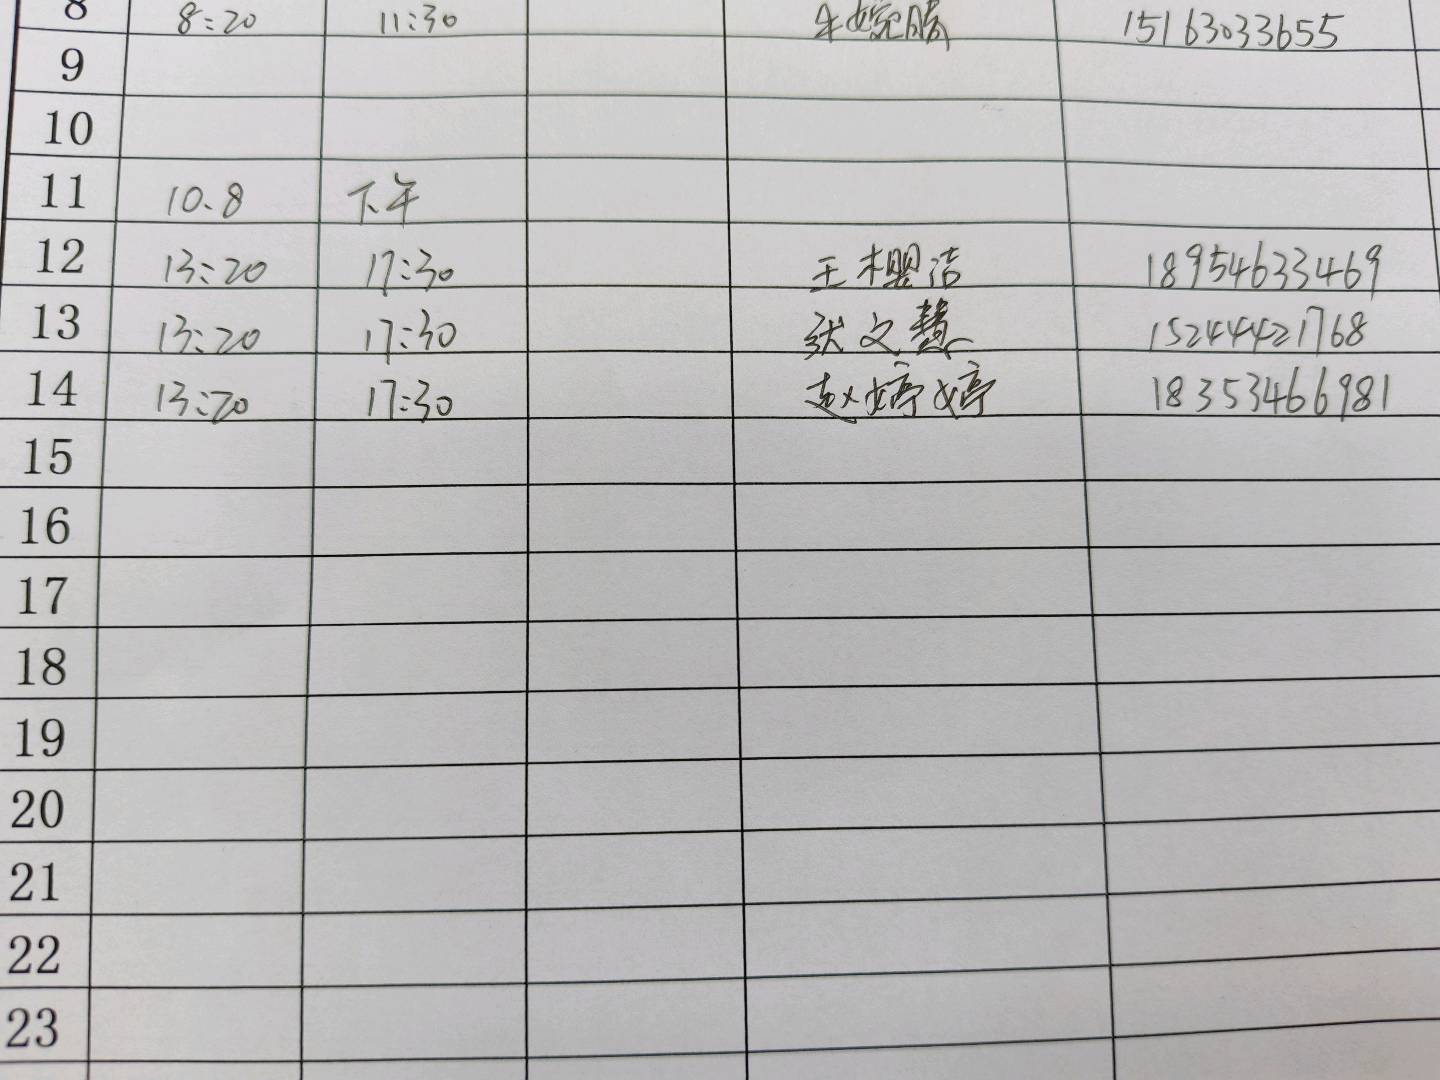 8 8:20 11:30 15163033655
9
10
11 10.8 下午
12 13:20 17:30 王樱洁 18954633469
13 13:20 17:30 张文慧 15244421768
14 13:20 17:30 赵婷婷 18353466981
15
16
17
18
19
20
21
22
23